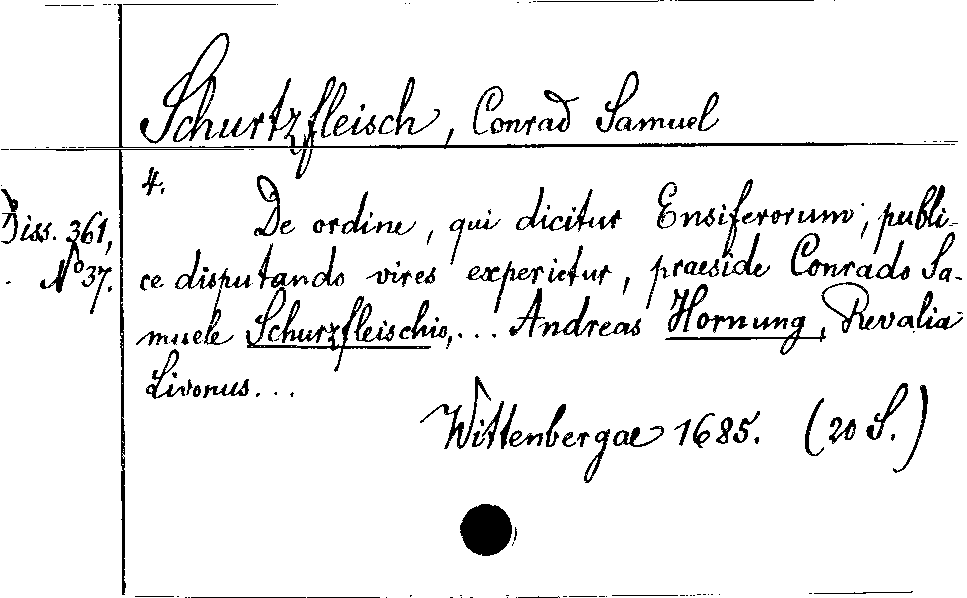 Schurtzfleisch, Conrad Samuel
4.
Diss. 361,
No 37.
De ordine, qui dicitur Ensiferorum, publi-
ce disputando vires experietur, praeside Conrado Sa-
muele Schurzfleischio,... Andreas Hornung, Revalia
Livonus...
Wittenbergae 1685. (20 S.)